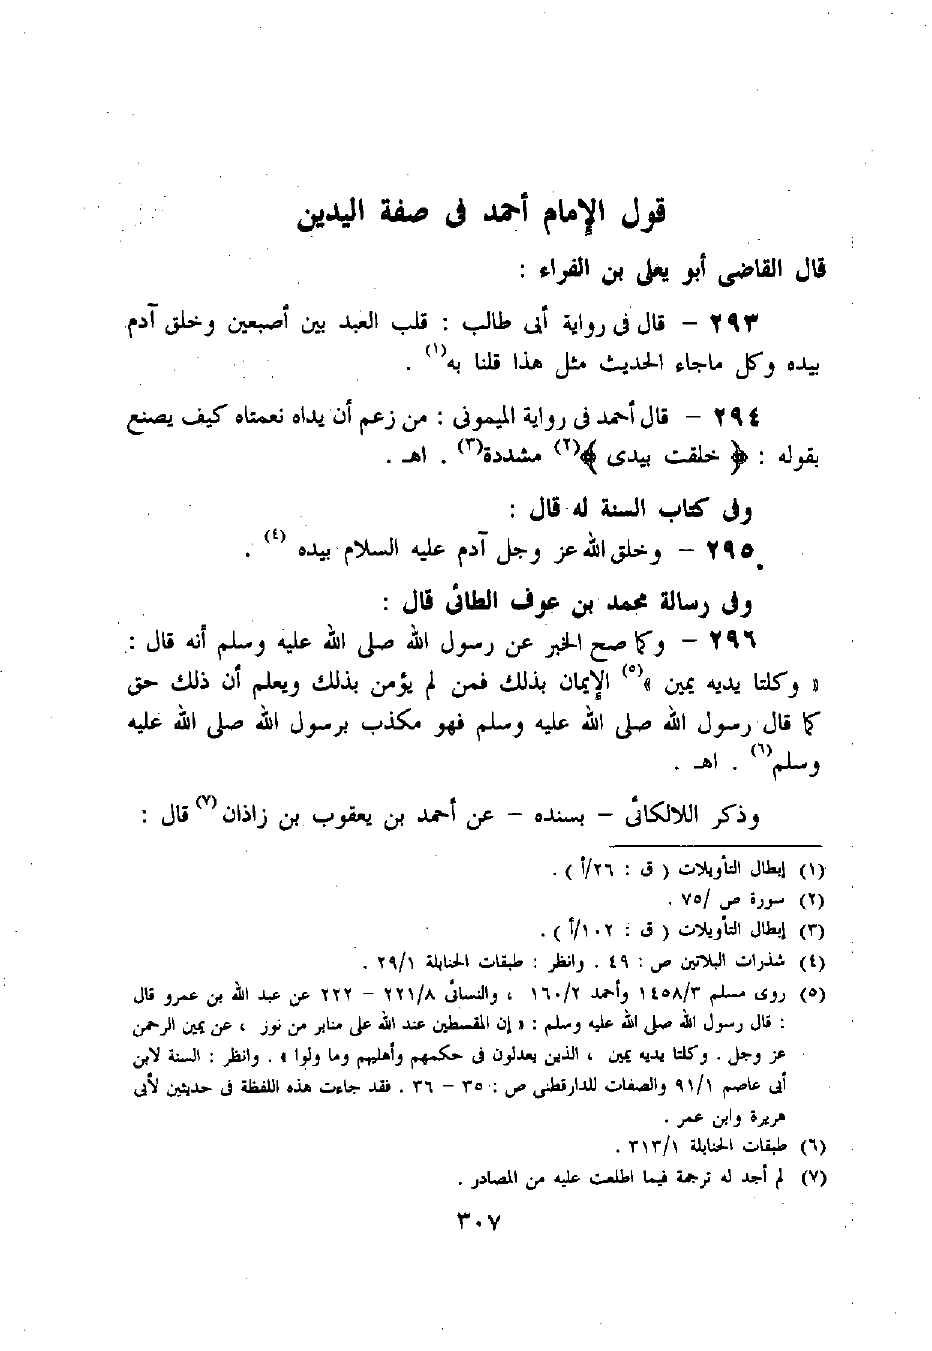 قول الإمام أحمد فى صفة اليدين
قال القاضى أبو يعلى بن الفراء :
٢٩٣ – قال فى رواية أبى طالب : قلب العبد بين أصبعين وخلق آدم
بيده وكل ماجاء الحديث مثل هذا قلنا به(١) .
٢٩٤ – قال أحمد فى رواية الميمونى : من زعم أن يداه نعمتاه كيف يصنع
بقوله : ﴿ خلقت بيدى ﴾(٢) مشددة(٣) . اهـ .
وفى كتاب السنة له قال :
٢٩٥ – وخلق الله عز وجل آدم عليه السلام بيده (٤) .
وفى رسالة محمد بن عوف الطائى قال :
٢٩٦ – وكما صح الخبر عن رسول الله صلى الله عليه وسلم أنه قال :
« وكلتا يديه يمين »(٥) الإيمان بذلك فمن لم يؤمن بذلك ويعلم أن ذلك حق
كما قال رسول الله صلى الله عليه وسلم فهو مكذب برسول الله صلى الله عليه
وسلم(٦) . اهـ .
وذكر اللالكائى – بسنده – عن أحمد بن يعقوب بن زاذان(٧) قال :
(١) إبطال التأويلات ( ق : ٢٦/أ ) .
(٢) سورة ص /٧٥ .
(٣) إبطال التأويلات ( ق : ١٠٢/أ ) .
(٤) شذرات البلاتين ص : ٤٩ . وانظر : طبقات الحنابلة ٢٩/١ .
(٥) روى مسلم ١٤٥٨/٣ وأحمد ١٦٠/٢ ، والنسائى ٢٢١/٨ – ٢٢٢ عن عبد الله بن عمرو قال
: قال رسول الله صلى الله عليه وسلم : « إن المقسطين عند الله على منابر من نور ، عن يمين الرحمن
عز وجل . وكلتا يديه يمين ، الذين يعدلون فى حكمهم وأهليهم وما ولوا » . وانظر : السنة لابن
أبى عاصم ٩١/١ والصفات للدارقطنى ص : ٣٥ – ٣٦ . فقد جاءت هذه اللفظة فى حديثين لأبى
هريرة وابن عمر .
(٦) طبقات الحنابلة ٣١٣/١ .
(٧) لم أجد له ترجمة فيما اطلعت عليه من المصادر .
٣٠٧